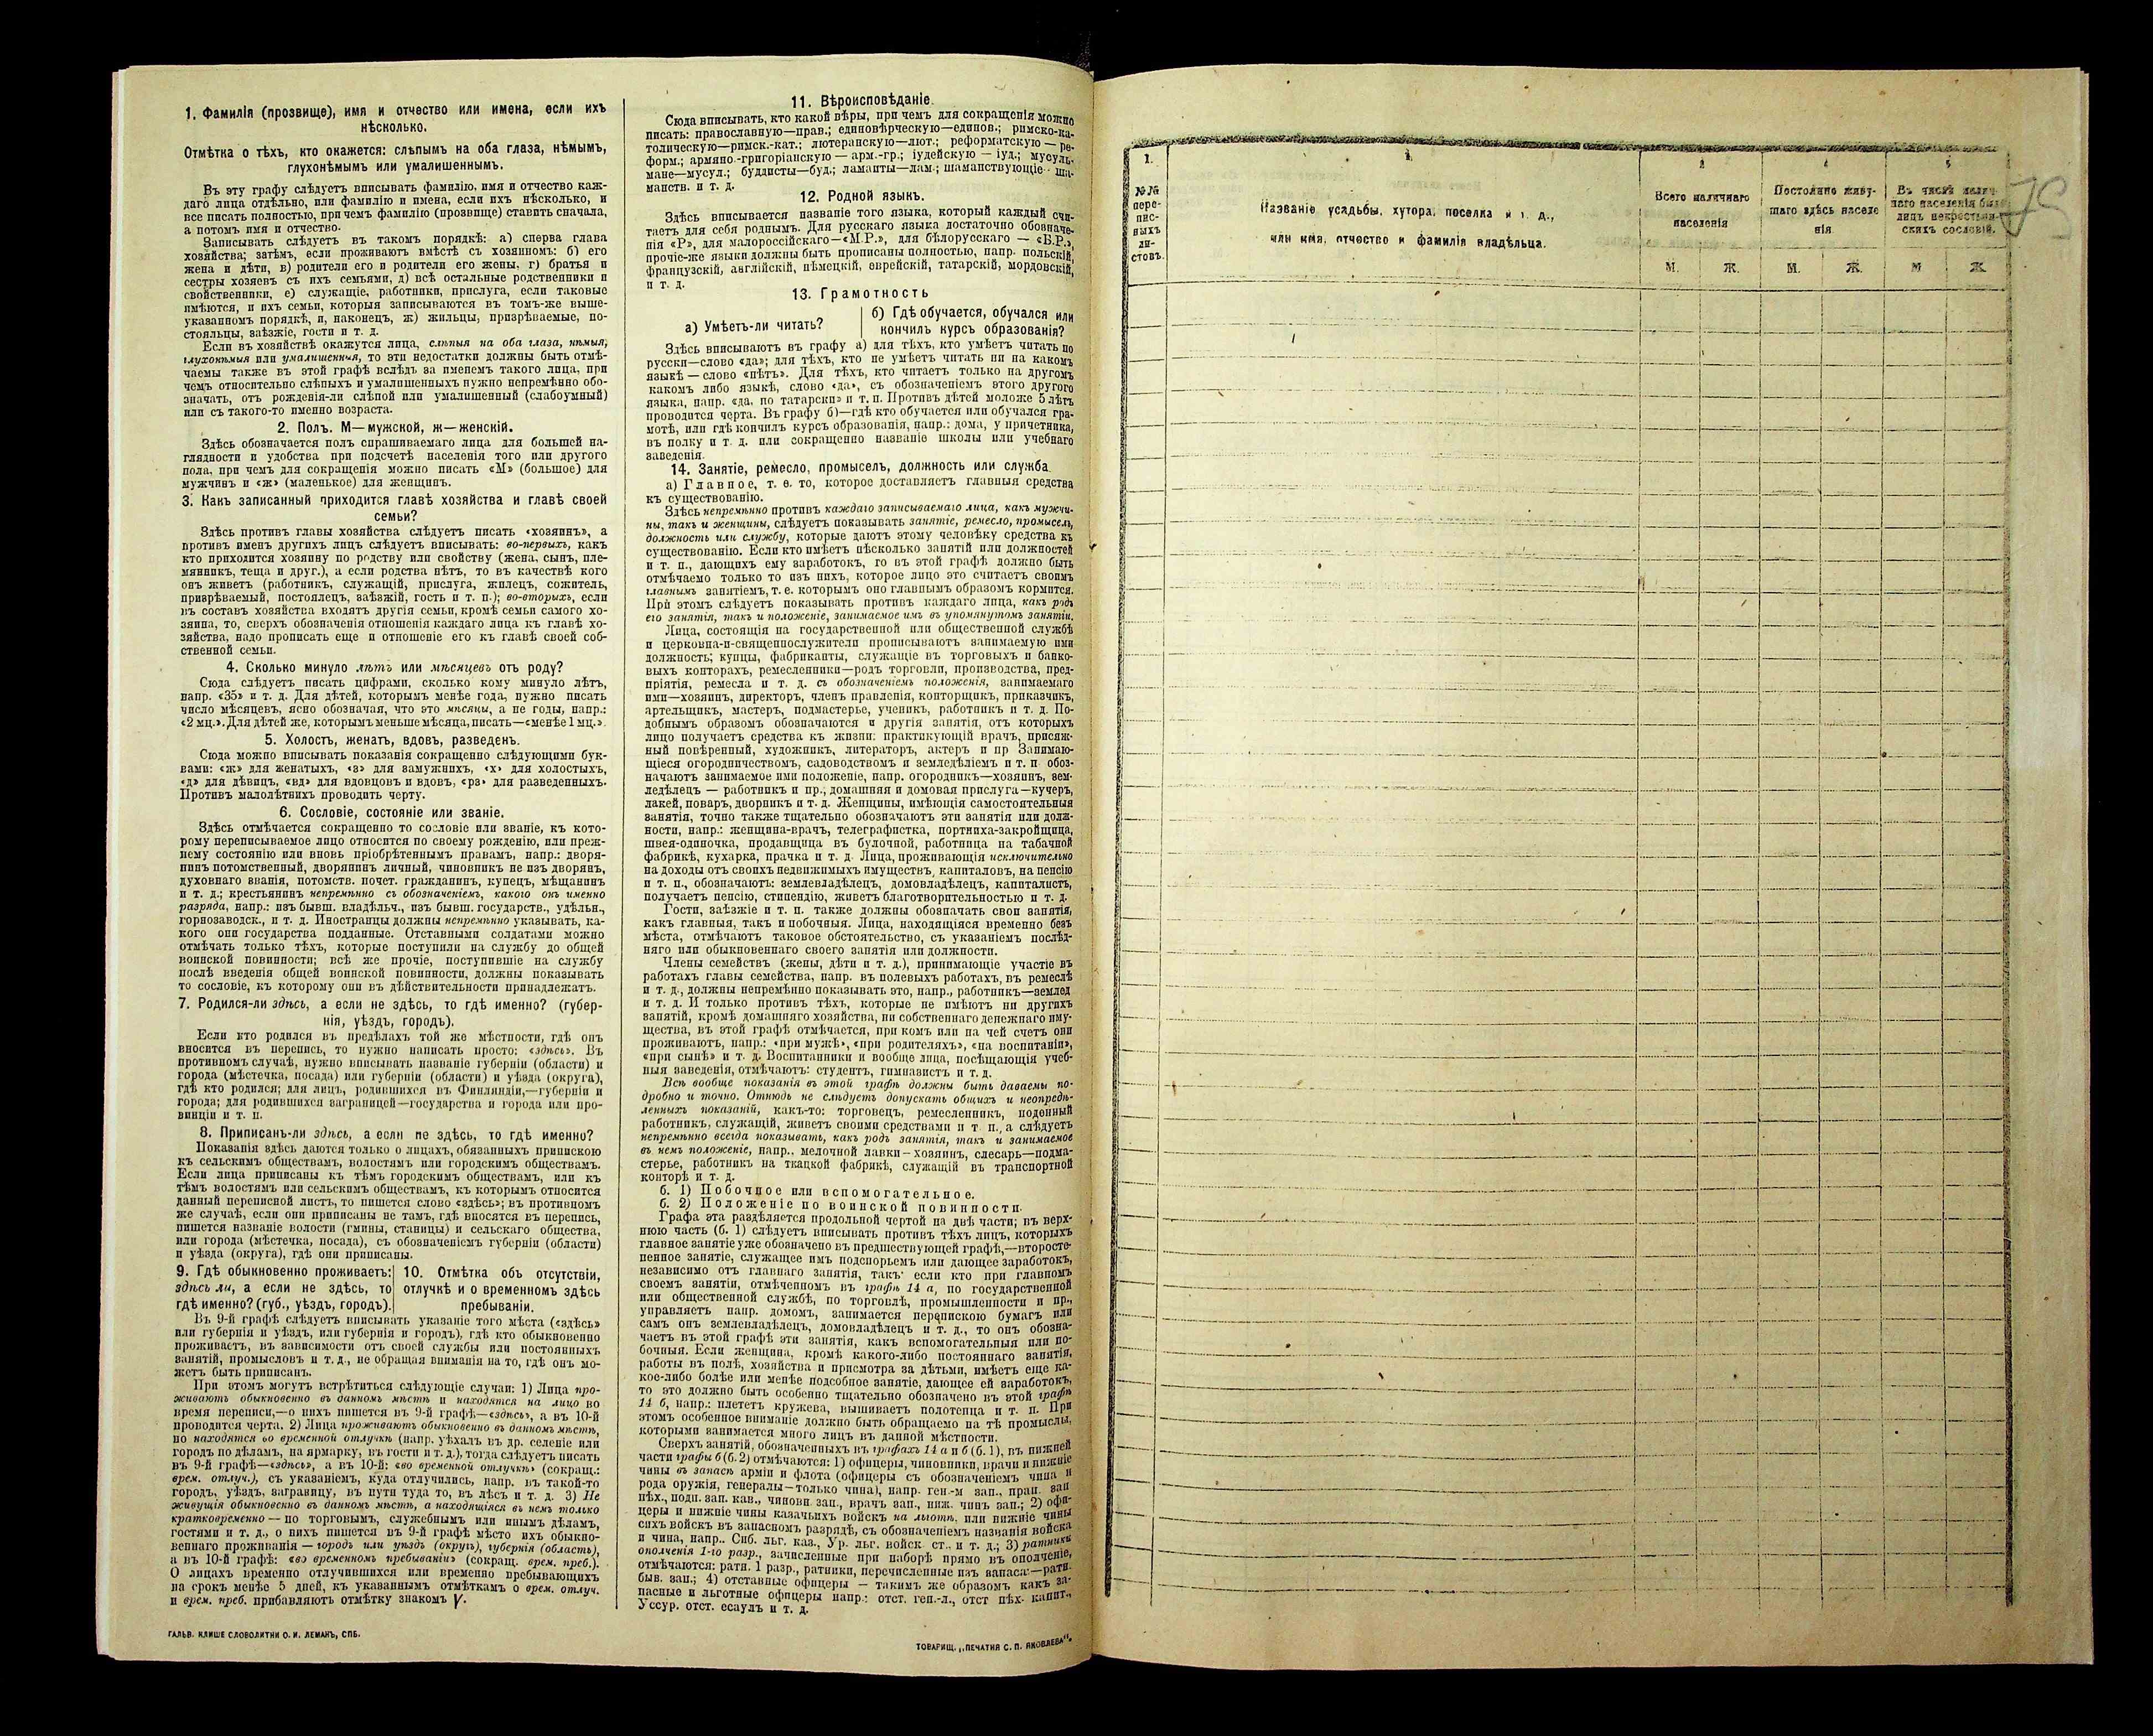 1. Фамилія (прозвище), имя и отчество или имена, если ихъ
нѣсколько.
Отмѣтка о тѣхъ, кто окажется: слѣпымъ на оба глаза, нѣмымъ,
глухонѣмымъ или умалишеннымъ.
Въ эту графу слѣдуетъ вписывать фамилію, имя и отчество каж-
даго лица отдѣльно, или фамилію и имена, если ихъ нѣсколько, и
все писать полностью, при чемъ фамилію (прозвище) ставить сначала,
а потомъ имя и отчество.
Записывать слѣдуетъ въ такомъ порядкѣ: а) сперва глава
хозяйства; затѣмъ, если проживаютъ вмѣстѣ съ хозяиномъ: б) его
жена и дѣти, в) родители его и родители его жены, г) братья и
сестры хозяевъ съ ихъ семьями, д) всѣ остальные родственники и
свойственники, е) служащіе, работники, прислуга, если таковые
имѣются, и ихъ семьи, которыя записываются въ томъ-же выше-
указанномъ порядкѣ, и, наконецъ, ж) жильцы, призрѣваемые, по-
стояльцы, заѣзжіе, гости и т. д.
Если въ хозяйствѣ окажутся лица, слѣпыя на оба глаза, нѣмыя,
глухонѣмыя или умалишенныя, то эти недостатки должны быть отмѣ-
чаемы также въ этой графѣ вслѣдъ за именемъ такого лица, при
чемъ относительно слѣпыхъ и умалишенныхъ нужно непремѣнно обо-
значать, отъ рожденія-ли слѣпой или умалишенный (слабоумный)
или съ такого-то именно возраста.
2. Полъ. М—мужской, ж—женскій.
Здѣсь обозначается полъ спрашиваемаго лица для большей на-
глядности и удобства при подсчетѣ населенія того или другого
пола, при чемъ для сокращенія можно писать «М» (большое) для
мужчинъ и «ж» (маленькое) для женщинъ.
3. Какъ записанный приходится главѣ хозяйства и главѣ своей
семьи?
Здѣсь противъ главы хозяйства слѣдуетъ писать «хозяинъ», а
противъ именъ другихъ лицъ слѣдуетъ вписывать: во-первыхъ, какъ
кто приходится хозяину по родству или свойству (жена, сынъ, пле-
мянникъ, теща и друг.), а если родства нѣтъ, то въ качествѣ кого
онъ живетъ (работникъ, служащій, прислуга, жилецъ, сожитель,
призрѣваемый, постоялецъ, заѣзжій, гость и т. п.); во-вторыхъ, если
въ составъ хозяйства входятъ другія семьи, кромѣ семьи самого хо-
зяина, то, сверхъ обозначенія отношенія каждаго лица къ главѣ хо-
зяйства, надо прописать еще и отношеніе его къ главѣ своей соб-
ственной семьи.
4. Сколько минуло лѣтъ или мѣсяцевъ отъ роду?
Сюда слѣдуетъ писать цифрами, сколько кому минуло лѣтъ,
напр. «35» и т. д. Для дѣтей, которымъ менѣе года, нужно писать
число мѣсяцевъ, ясно обозначая, что это мѣсяцы, а не годы, напр.:
«2 мц.». Для дѣтей же, которымъ меньше мѣсяца, писать—«менѣе 1 мц.».
5. Холостъ, женатъ, вдовъ, разведенъ.
Сюда можно вписывать показанія сокращенно слѣдующими бук-
вами: «ж» для женатыхъ, «з» для замужнихъ, «х» для холостыхъ,
«д» для дѣвицъ, «вд» для вдовцовъ и вдовъ, «рз» для разведенныхъ.
Противъ малолѣтнихъ проводить черту.
6. Сословіе, состояніе или званіе.
Здѣсь отмѣчается сокращенно то сословіе или званіе, къ кото-
рому переписываемое лицо относится по своему рожденію, или преж-
нему состоянію или вновь пріобрѣтеннымъ правамъ, напр.: дворя-
нинъ потомственный, дворянинъ личный, чиновникъ не изъ дворянъ,
духовнаго званія, потомств. почет. гражданинъ, купецъ, мѣщанинъ
и т. д.; крестьянинъ непремѣнно съ обозначеніемъ, какого онъ именно
разряда, напр.: изъ бывш. владѣльч., изъ бывш. государств., удѣльн.,
горнозаводск., и т. д. Иностранцы должны непремѣнно указывать, ка-
кого они государства подданные. Отставными солдатами можно
отмѣчать только тѣхъ, которые поступили на службу до общей
воинской повинности; всѣ же прочіе, поступившіе на службу
послѣ введенія общей воинской повинности, должны показывать
то сословіе, къ которому они въ дѣйствительности принадлежатъ.
7. Родился-ли здѣсь, а если не здѣсь, то гдѣ именно? (губер-
нія, уѣздъ, городъ).
Если кто родился въ предѣлахъ той же мѣстности, гдѣ онъ
вносится въ перепись, то нужно написать просто: «здѣсь». Въ
противномъ случаѣ, нужно вписывать названіе губерніи (области) и
города (мѣстечка, посада) или губерніи (области) и уѣзда (округа),
гдѣ кто родился; для лицъ, родившихся въ Финляндіи,—губерніи и
города; для родившихся заграницей—государства и города или про-
винціи и т. п.
8. Приписанъ-ли здѣсь, а если не здѣсь, то гдѣ именно?
Показанія здѣсь даются только о лицахъ, обязанныхъ припискою
къ сельскимъ обществамъ, волостямъ или городскимъ обществамъ.
Если лица приписаны къ тѣмъ городскимъ обществамъ, или къ
тѣмъ волостямъ или сельскимъ обществамъ, къ которымъ относится
данный переписной листъ, то пишется слово «здѣсь»; въ противномъ
же случаѣ, если они приписаны не тамъ, гдѣ вносятся въ перепись,
пишется названіе волости (гмины, станицы) и сельскаго общества,
или города (мѣстечка, посада), съ обозначеніемъ губерніи (области)
и уѣзда (округа), гдѣ они приписаны.
9. Гдѣ обыкновенно проживаетъ:
здѣсь ли, а если не здѣсь, то
гдѣ именно? (губ., уѣздъ, городъ).
10. Отмѣтка объ отсутствіи,
отлучкѣ и о временномъ здѣсь
пребываніи.
Въ 9-й графѣ слѣдуетъ вписывать указаніе того мѣста («здѣсь»
или губернія и уѣздъ, или губернія и городъ), гдѣ кто обыкновенно
проживаетъ, въ зависимости отъ своей службы или постоянныхъ
занятій, промысловъ и т. д., не обращая вниманія на то, гдѣ онъ мо-
жетъ быть приписанъ.
При этомъ могутъ встрѣтиться слѣдующіе случаи: 1) Лица про-
живаютъ обыкновенно въ данномъ мѣстѣ и находятся на лицо во
время переписи,—о нихъ пишется въ 9-й графѣ—«здѣсь», а въ 10-й
проводится черта. 2) Лица проживаютъ обыкновенно въ данномъ мѣстѣ,
но находятся во временной отлучкѣ (напр. уѣхалъ въ др. селеніе или
городъ по дѣламъ, на ярмарку, въ гости и т. д.), тогда слѣдуетъ писать
въ 9-й графѣ—«здѣсь», а въ 10-й: «во временной отлучкѣ» (сокращ.:
врем. отлуч.), съ указаніемъ, куда отлучились, напр. въ такой-то
городъ, уѣздъ, заграницу, въ пути туда то, въ лѣсъ и т. д. 3) Не
живущія обыкновенно въ данномъ мѣстѣ, а находящіяся въ немъ только
кратковременно — по торговымъ, служебнымъ или инымъ дѣламъ,
гостями и т. д., о нихъ пишется въ 9-й графѣ мѣсто ихъ обыкно-
веннаго проживанія — городъ или уѣздъ (округъ), губернія (область),
а въ 10-й графѣ: «во временномъ пребываніи» (сокращ. врем. преб.).
О лицахъ временно отлучившихся или временно пребывающихъ
на срокъ менѣе 5 дней, къ указаннымъ отмѣткамъ о врем. отлуч.
и врем. преб. прибавляютъ отмѣтку знакомъ V.
ГАЛЬВ. КЛИШЕ СЛОВОЛИТНИ О. И. ЛЕМАНЪ, СПБ.
11. Вѣроисповѣданіе.
Сюда вписывать, кто какой вѣры, при чемъ для сокращенія можно
писать: православную—прав.; единовѣрческую—единов.; римско-ка-
толическую—римск.-кат.; лютеранскую—лют.; реформатскую — ре-
форм.; армяно-григоріанскую — арм.-гр.; іудейскую — іуд.; мусуль-
мане—мусул.; буддисты—буд.; ламаиты—лам.; шаманствующіе— ша-
манств. и т. д.
12. Родной языкъ.
Здѣсь вписывается названіе того языка, который каждый счи-
таетъ для себя роднымъ. Для русскаго языка достаточно обозначе-
нія «Р», для малороссійскаго—«М.Р.», для бѣлорусскаго — «Б.Р.»,
прочіе-же языки должны быть прописаны полностью, напр. польскій,
французскій, англійскій, нѣмецкій, еврейскій, татарскій, мордовскій,
и т. д.
13. Грамотность
а) Умѣетъ-ли читать?
б) Гдѣ обучается, обучался или
кончилъ курсъ образованія?
Здѣсь вписываютъ въ графу а) для тѣхъ, кто умѣетъ читать по
русски—слово «да»; для тѣхъ, кто не умѣетъ читать ни на какомъ
языкѣ — слово «нѣтъ». Для тѣхъ, кто читаетъ только на другомъ
какомъ либо языкѣ, слово «да», съ обозначеніемъ этого другого
языка, напр. «да, по татарски» и т. п. Противъ дѣтей моложе 5 лѣтъ
проводится черта. Въ графу б)—гдѣ кто обучается или обучался гра-
мотѣ, или гдѣ кончилъ курсъ образованія, напр.: дома, у причетника,
въ полку и т. д. или сокращенно названіе школы или учебнаго
заведенія.
14. Занятіе, ремесло, промыселъ, должность или служба.
а) Главное, т. е. то, которое доставляетъ главныя средства
къ существованію.
Здѣсь непремѣнно противъ каждаго записываемаго лица, какъ мужчи-
ны, такъ и женщины, слѣдуетъ показывать занятіе, ремесло, промыселъ,
должность или службу, которые даютъ этому человѣку средства къ
существованію. Если кто имѣетъ нѣсколько занятій или должностей
и т. п., дающихъ ему заработокъ, то въ этой графѣ должно быть
отмѣчаемо только то изъ нихъ, которое лицо это считаетъ своимъ
главнымъ занятіемъ, т. е. которымъ оно главнымъ образомъ кормится.
При этомъ слѣдуетъ показывать противъ каждаго лица, какъ родъ
его занятія, такъ и положеніе, занимаемое имъ въ упомянутомъ занятіи.
Лица, состоящія на государственной или общественной службѣ
и церковно-и-священнослужители прописываютъ занимаемую ими
должность; купцы, фабриканты, служащіе въ торговыхъ и банко-
выхъ конторахъ, ремесленники—родъ торговли, производства, пред-
пріятія, ремесла и т. д. съ обозначеніемъ положенія, занимаемаго
ими—хозяинъ, директоръ, членъ правленія, конторщикъ, приказчикъ,
артельщикъ, мастеръ, подмастерье, ученикъ, работникъ и т. д. По-
добнымъ образомъ обозначаются и другія занятія, отъ которыхъ
лицо получаетъ средства къ жизни: практикующій врачъ, присяж-
ный повѣренный, художникъ, литераторъ, актеръ и пр Занимаю-
щіеся огородничествомъ, садоводствомъ и земледѣліемъ и т. п обоз-
начаютъ занимаемое ими положеніе, напр. огородникъ—хозяинъ, зем-
ледѣлецъ — работникъ и пр.; домашняя и домовая прислуга—кучеръ,
лакей, поваръ, дворникъ и т. д. Женщины, имѣющія самостоятельныя
занятія, точно также тщательно обозначаютъ эти занятія или долж-
ности, напр.: женщина-врачъ, телеграфистка, портниха-закройщица,
швея-одиночка, продавщица въ булочной, работница на табачной
фабрикѣ, кухарка, прачка и т. д. Лица, проживающія исключительно
на доходы отъ своихъ недвижимыхъ имуществъ, капиталовъ, на пенсію
и т. п., обозначаютъ: землевладѣлецъ, домовладѣлецъ, капиталистъ,
получаетъ пенсію, стипендію, живетъ благотворительностью и т. д.
Гости, заѣзжіе и т. п. также должны обозначать свои занятія,
какъ главныя, такъ и побочныя. Лица, находящіяся временно безъ
мѣста, отмѣчаютъ таковое обстоятельство, съ указаніемъ послѣд-
няго или обыкновеннаго своего занятія или должности.
Члены семействъ (жены, дѣти и т. д.), принимающіе участіе въ
работахъ главы семейства, напр. въ полевыхъ работахъ, въ ремеслѣ
и т. д., должны непремѣнно показывать это, напр., работникъ—землед
и т. д. И только противъ тѣхъ, которые не имѣютъ ни другихъ
занятій, кромѣ домашняго хозяйства, ни собственнаго денежнаго иму-
щества, въ этой графѣ отмѣчается, при комъ или на чей счетъ они
проживаютъ, напр.: «при мужѣ», «при родителяхъ», «на воспитаніи»,
«при сынѣ» и т. д. Воспитанники и вообще лица, посѣщающія учеб-
ныя заведенія, отмѣчаютъ: студентъ, гимназистъ и т. д.
Всѣ вообще показанія въ этой графѣ должны быть даваемы по-
дробно и точно. Отнюдь не слѣдуетъ допускать общихъ и неопредѣ-
ленныхъ показаній, какъ-то: торговецъ, ремесленникъ, поденный
работникъ, служащій, живетъ своими средствами и т. п., а слѣдуетъ
непремѣнно всегда показывать, какъ родъ занятія, такъ и занимаемое
въ немъ положеніе, напр., мелочной лавки—хозяинъ, слесарь—подма-
стерье, работникъ на ткацкой фабрикѣ, служащій въ транспортной
конторѣ и т. д.
б. 1) Побочное или вспомогательное.
б. 2) Положеніе по воинской повинности.
Графа эта раздѣляется продольной чертой на двѣ части; въ верх-
нюю часть (б. 1) слѣдуетъ вписывать противъ тѣхъ лицъ, которыхъ
главное занятіе уже обозначено въ предшествующей графѣ,—второсте-
пенное занятіе, служащее имъ подспорьемъ или дающее заработокъ,
независимо отъ главнаго занятія, такъ если кто при главномъ
своемъ занятіи, отмѣченномъ въ графѣ 14 а, по государственной
или общественной службѣ, по торговлѣ, промышленности и пр.,
управляетъ напр. домомъ, занимается перепискою бумагъ или
самъ онъ землевладѣлецъ, домовладѣлецъ и т. д., то онъ обозна-
чаетъ въ этой графѣ эти занятія, какъ вспомогательныя или по-
бочныя. Если женщина, кромѣ какого-либо постояннаго занятія,
работы въ полѣ, хозяйства и присмотра за дѣтьми, имѣетъ еще ка-
кое-либо болѣе или менѣе подсобное занятіе, дающее ей заработокъ,
то это должно быть особенно тщательно обозначено въ этой графѣ
14 б, напр.: плететъ кружева, вышиваетъ полотенца и т. п. При
этомъ особенное вниманіе должно быть обращаемо на тѣ промыслы,
которыми занимается много лицъ въ данной мѣстности.
Сверхъ занятій, обозначенныхъ въ графахъ 14 а и б (б. 1), въ нижней
части графы б (б. 2) отмѣчаются: 1) офицеры, чиновники, врачи и нижніе
чины въ запасѣ арміи и флота (офицеры съ обозначеніемъ чина и
рода оружія, генералы—только чина), напр. ген.-м зап., прап. зап
пѣх., подп. зап. кав., чиновн. зап., врачъ зап., ниж. чинъ зап.; 2) офи-
церы и нижніе чины казачьихъ войскъ на льготѣ, или нижніе чины
сихъ войскъ въ запасномъ разрядѣ, съ обозначеніемъ названія войска
и чина, напр.. Сиб. льг. каз., Ур. льг. войск. ст., и т. д.; 3) ратники
ополченія 1-го разр., зачисленные при наборѣ прямо въ ополченіе,
отмѣчаются: ратн. 1 разр., ратники, перечисленные изъ запаса:—ратн.
быв. зап.; 4) отставные офицеры — такимъ же образомъ какъ за-
пасные и льготные офицеры напр.: отст. ген.-л., отст пѣх. капит.,
Уссур. отст. есаулъ и т. д.
ТОВАРИЩ. „ПЕЧАТНЯ С. П. ЯКОВЛЕВА“.
1.
№№
пере-
пис-
ныхъ
ли-
стовъ.
Названіе усадьбы, хутора, поселка и т. д.,
или имя, отчество и фамилія владѣльца.
Всего наличнаго
населенія
М. Ж.
Постоянно живу-
щаго здѣсь населе
нія
М. Ж.
5
Въ числѣ налич-
наго населенія было
лицъ некрестьян-
скихъ сословій.
М Ж